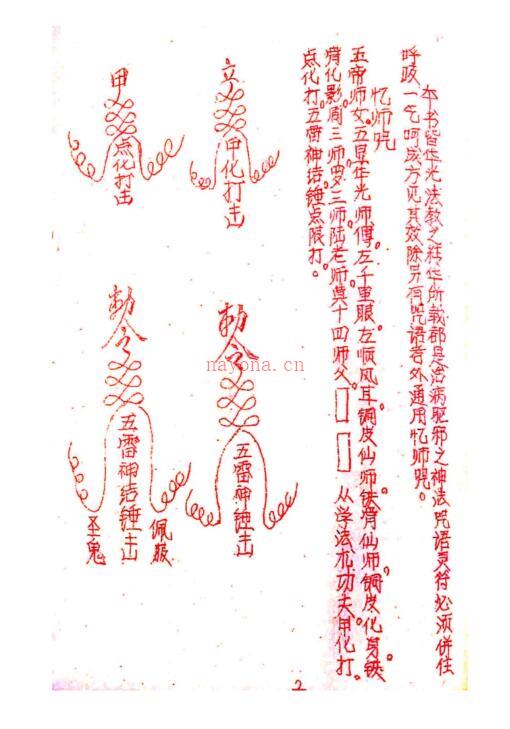 本书皆华光法教之精华所载都是治病驱邪之神法咒语灵符必须併住
呼吸一气呵成方见其效除另有咒语者外通用忆师咒。
忆师咒
五帝师女。五显华光师傅。左千里眼左顺风耳。铜皮仙师铁骨仙师。铜皮化身铁
骨化影。周三师罗三师陆老师莫十四师父。从学法术功夫甲化打。
点化打。五雷神结锤点限打。
立
甲化打击
甲
点化打击
勅令
五雷神锤击
勅令
五雷神结锤击
佩
鬼
nayona.cn
2